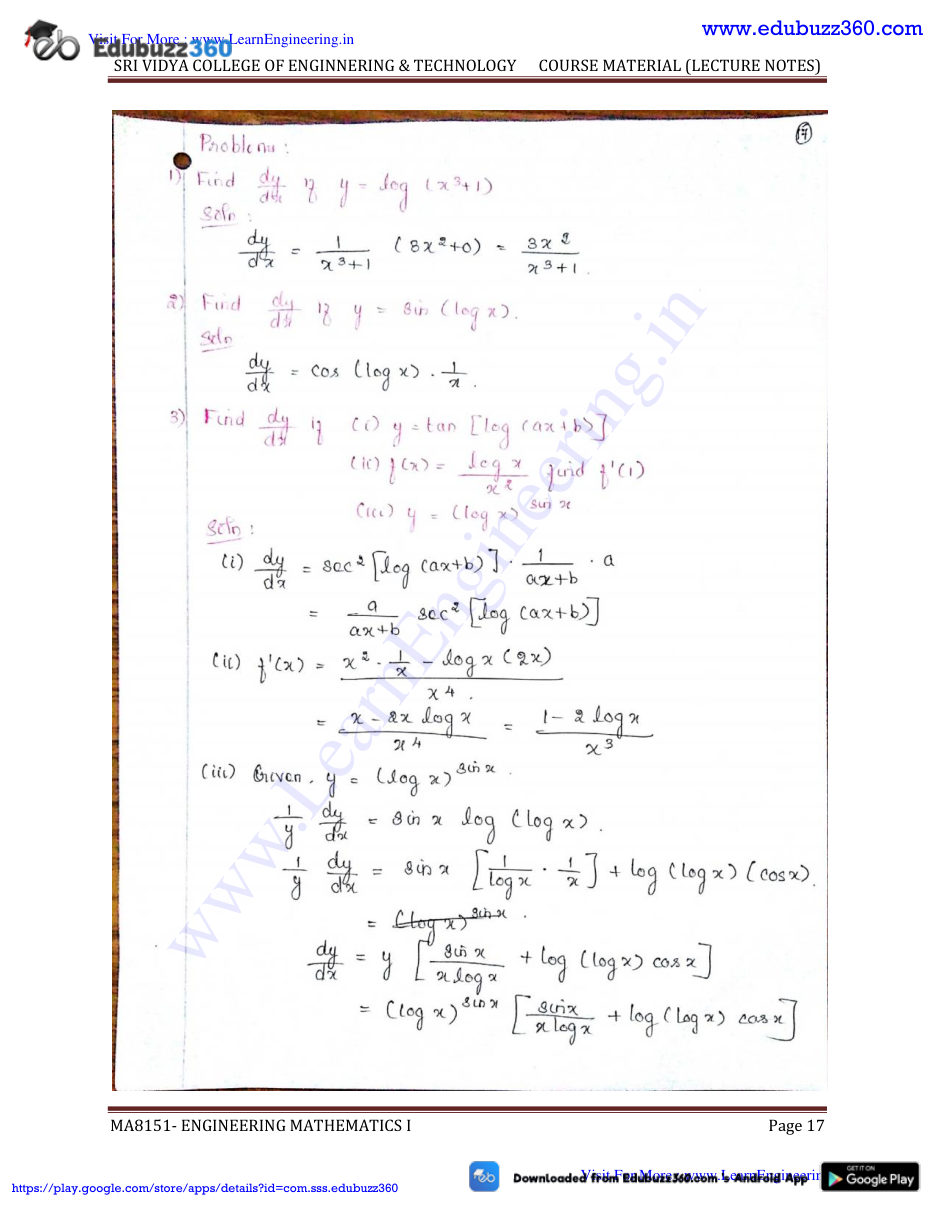 www.edubuzz360.com
Visit For More : www.LearnEngineering.in
Edubuzz360
SRI VIDYA COLLEGE OF ENGINNERING & TECHNOLOGY COURSE MATERIAL (LECTURE NOTES)
17
Problems :
1) Find dy/dx if y = log (x³+1)
Soln :
dy/dx = 1/(x³+1) (3x²+0) = 3x²/(x³+1).
2) Find dy/dx if y = sin (log x).
Soln
dy/dx = cos (log x) . 1/x.
3) Find dy/dx if (i) y = tan [log (ax+b)]
(ii) f(x) = log x / x² find f'(1)
(iii) y = (log x)^sin x
Soln :
(i) dy/dx = sec² [log (ax+b)] . 1/(ax+b) . a
= a/(ax+b) sec² [log (ax+b)]
(ii) f'(x) = (x² . 1/x - log x (2x)) / x⁴.
= (x - 2x log x)/x⁴ = (1 - 2 log x)/x³
(iii) Given. y = (log x)^sin x.
1/y dy/dx = sin x log (log x).
1/y dy/dx = sin x [1/log x . 1/x] + log (log x) (cos x).
= (log x)^sin x.
dy/dx = y [sin x/(x log x) + log (log x) cos x]
= (log x)^sin x [sin x/(x log x) + log (log x) cos x]
www.LearnEngineering.in
MA8151- ENGINEERING MATHEMATICS I Page 17
https://play.google.com/store/apps/details?id=com.sss.edubuzz360
Downloaded from EduBuzz360.com's Android App
Visit For More : www.LearnEngineerin
GET IT ON
Google Play